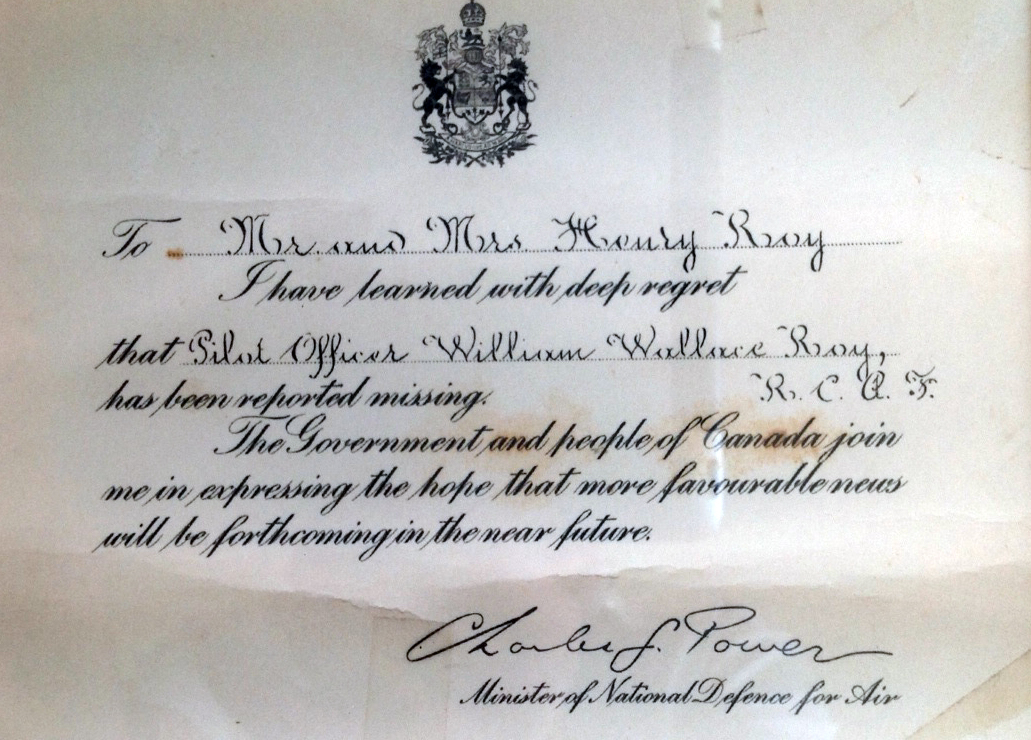 To Mr. and Mrs Henry Roy
I have learned with deep regret
that Pilot Officer William Wallace Roy,
R. C. A. F.
has been reported missing.
The Government and people of Canada join
me in expressing the hope that more favourable news
will be forthcoming in the near future.
Charles G. Power
Minister of National Defence for Air